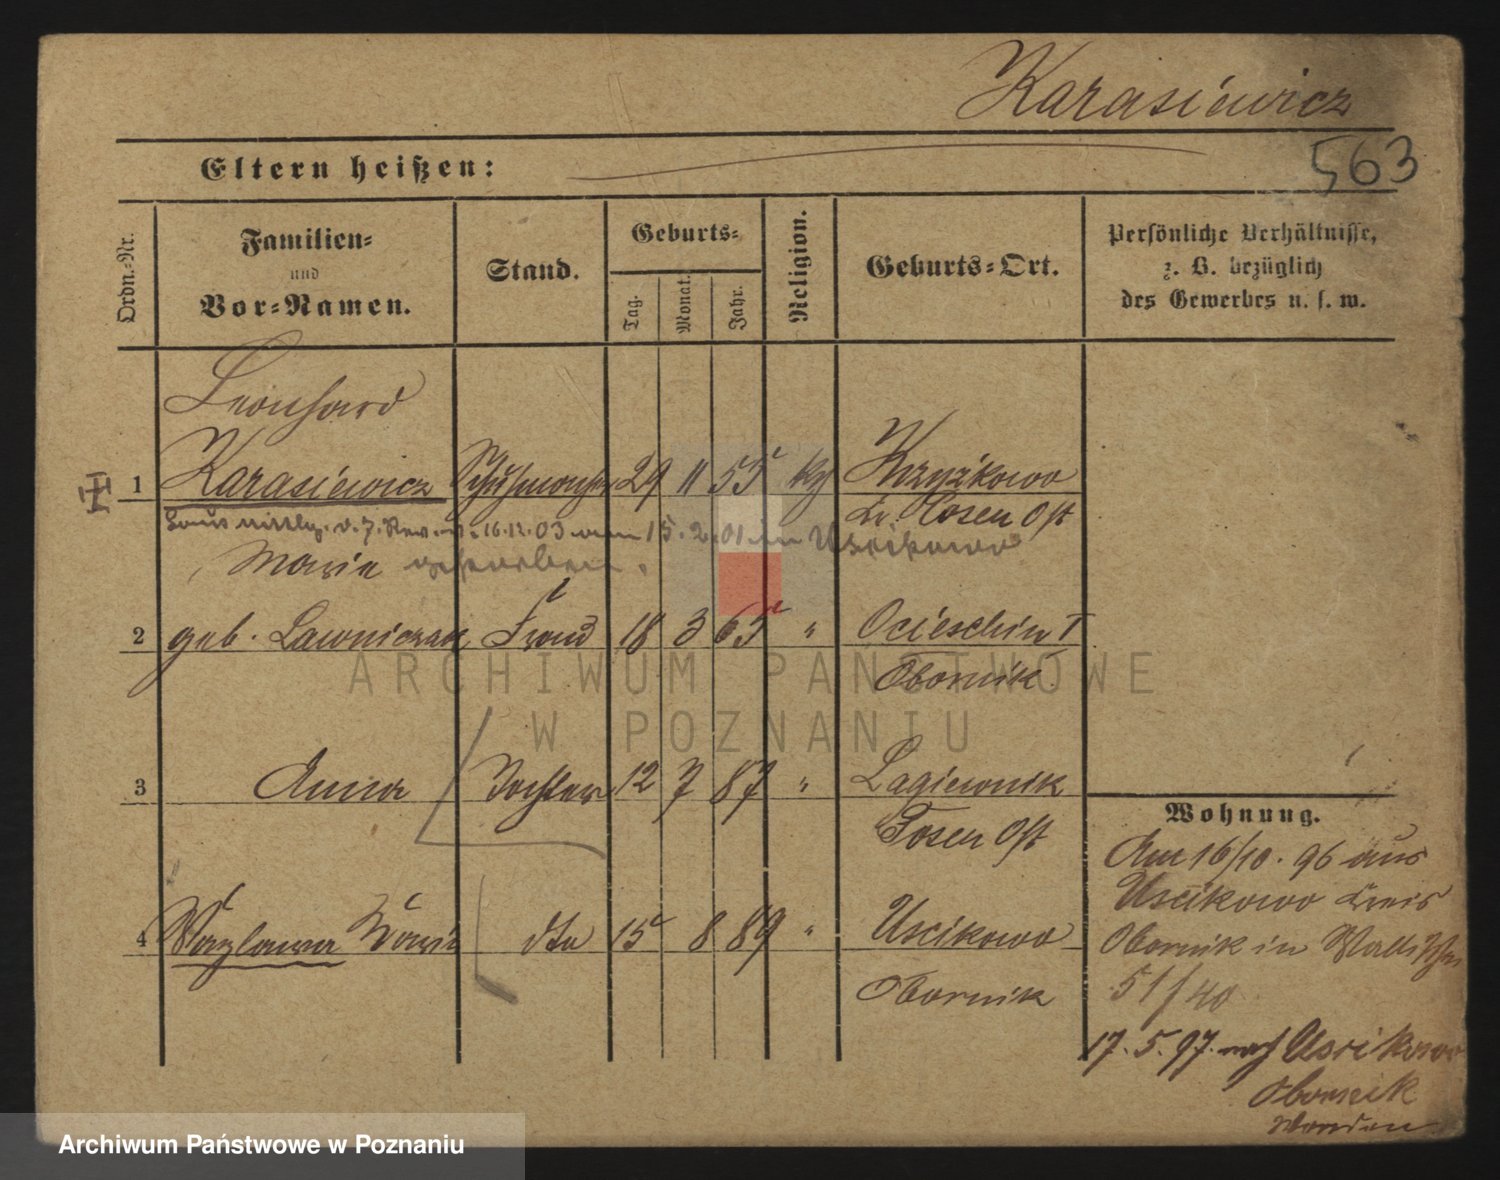 Karasiewicz
563
Eltern heißen:
Ordn.-Nr.
Familien-
und
Vor-Namen.
Stand.
Geburts-
Tag.
Monat.
Jahr.
Religion.
Geburts-Ort.
Persönliche Verhältnisse,
z. B. bezüglich
des Gewerbes u. s. w.
Leonhard
1 Karasiewicz Schuhmacher 29 11 55 kg Krzyżkowo
Kr. Posen Ost
Laut Mittlg. d. 7. Rev. v. 16.12.03 am 15.2.01 in Uscikowo
Marie gestorben.
2 geb. Lawniczak Frau 18 3 65 " Ocieschin T
Obornik
3 Anna Tochter 12 7 87 " Lagiewnik
Posen Ost
4 Wazlawa Marie dto 15 8 89 " Uscikowo
Obornik
Wohnung.
Am 16/10. 96 aus
Uscikowo Kreis
Obornik in Wallischei
51/40
17. 5. 97. nach Uscikowo
Obornik
ARCHIWUM PAŃSTWOWE
W POZNANIU
Archiwum Państwowe w Poznaniu